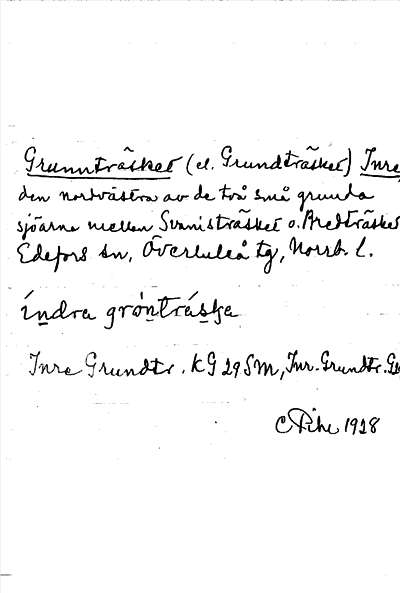 Grunnträsket (el. Grundträsket) Inre,
den nordvästra av de två små grunda
sjöarna mellan Svanisträsket o. Bredträsket
Edefors sn, Överluleå tg, Norrb. l.
índra gróntráska
Inre Grundtr. KG 29 SM, Inr. Grundtr. Ge
C Pihl 1928